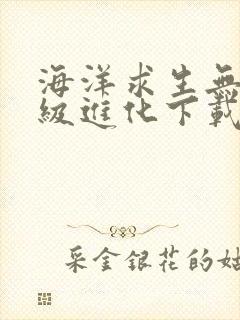 海洋求生無
級進化下載
采金銀花的姑